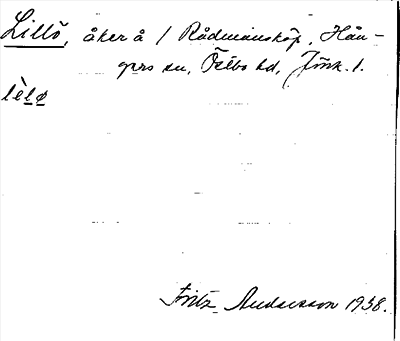 Lillö, åker å 1 Rådmansköp, Hån-
gers sn, Östbo hd, Jönk. l.
lèlø
Fritz Andersson 1938.